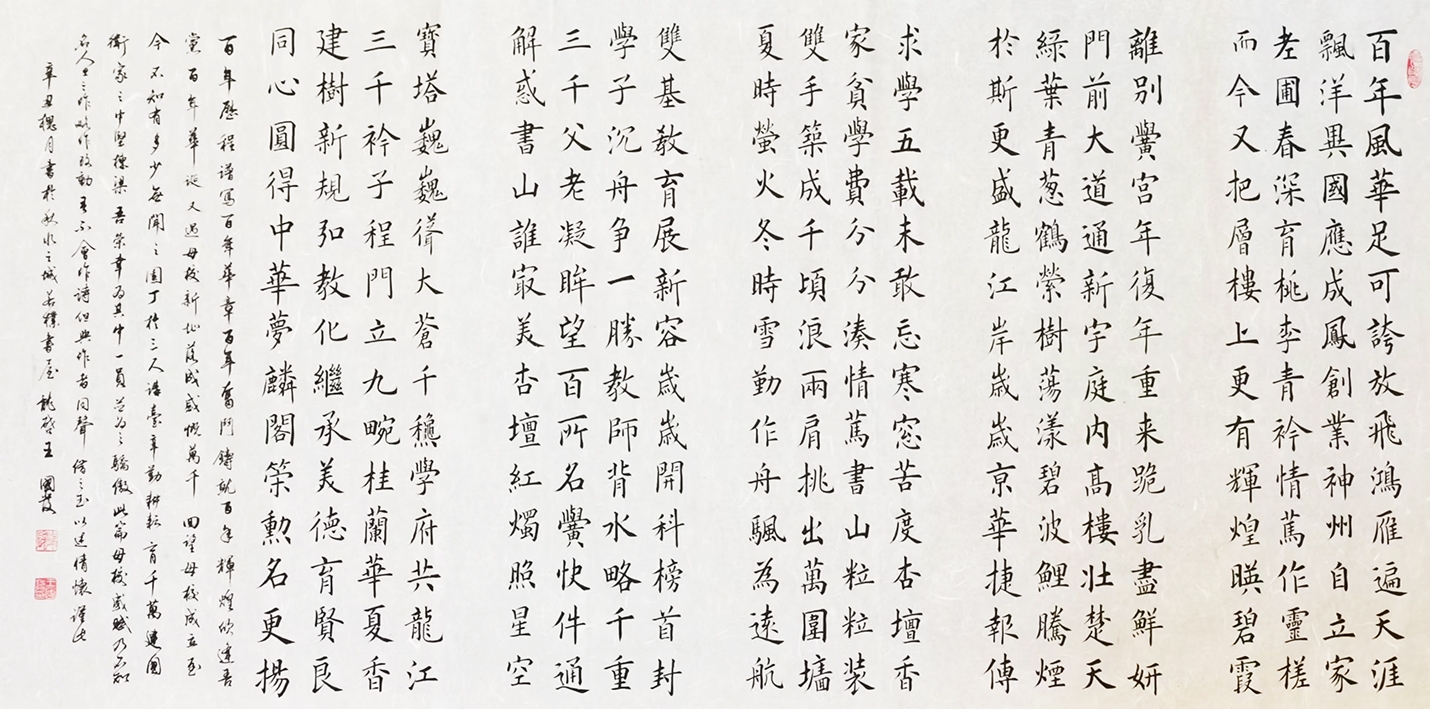 百年風華足可誇放飛鴻雁遍天涯
飄洋異國應成鳳創業神州自立家
老圃春深育桃李青衿情萬作靈槎
而今又把層樓上更有輝煌暎碧霞
離別黌宮年復年重来跪乳盡鮮妍
門前大道通新宇庭内高樓壯楚天
綠葉青葱鶴縈樹蕩漾碧波鯉騰煙
於斯更盛龍江岸歲歲京華捷報傳
求學五載未敢忘寒窓苦度杏壇香
家貧學費分分湊情篤書山粒粒裝
雙手築成千頃浪兩肩挑出萬圍墻
夏時螢火冬時雪勤作舟颿為遠航
雙基教育展新容歲歲開科榜首封
學子沉舟争一勝教師背水略千重
三千父老凝眸望百所名黌快件通
解惑書山誰冣美杏壇紅燭照星空
寶塔巍巍聳大蒼千穗學府共龍江
三千衿子程門立九畹桂蘭華夏香
建樹新規弘教化繼承美德育賢良
同心圓得中華夢麟閣榮勳名更揚
百年歷程譜寫百年華章百年奮鬥鑄就百年輝煌欣逢吾
黨百年華诞又遇母校新址落成感慨萬千回望母校成立至
今不知有多少每聞之園丁於三人講臺辛勤耕耘育千萬建國
衛家之中堅標梁吾榮幸為其中一員並為之驕傲此篇母校盛賦乃不知
名人士之作吾不會作詩但與作者同聲借之玉以述情懷謹此
辛丑槐月書於秋水之城若樸書屋龍啓王國發